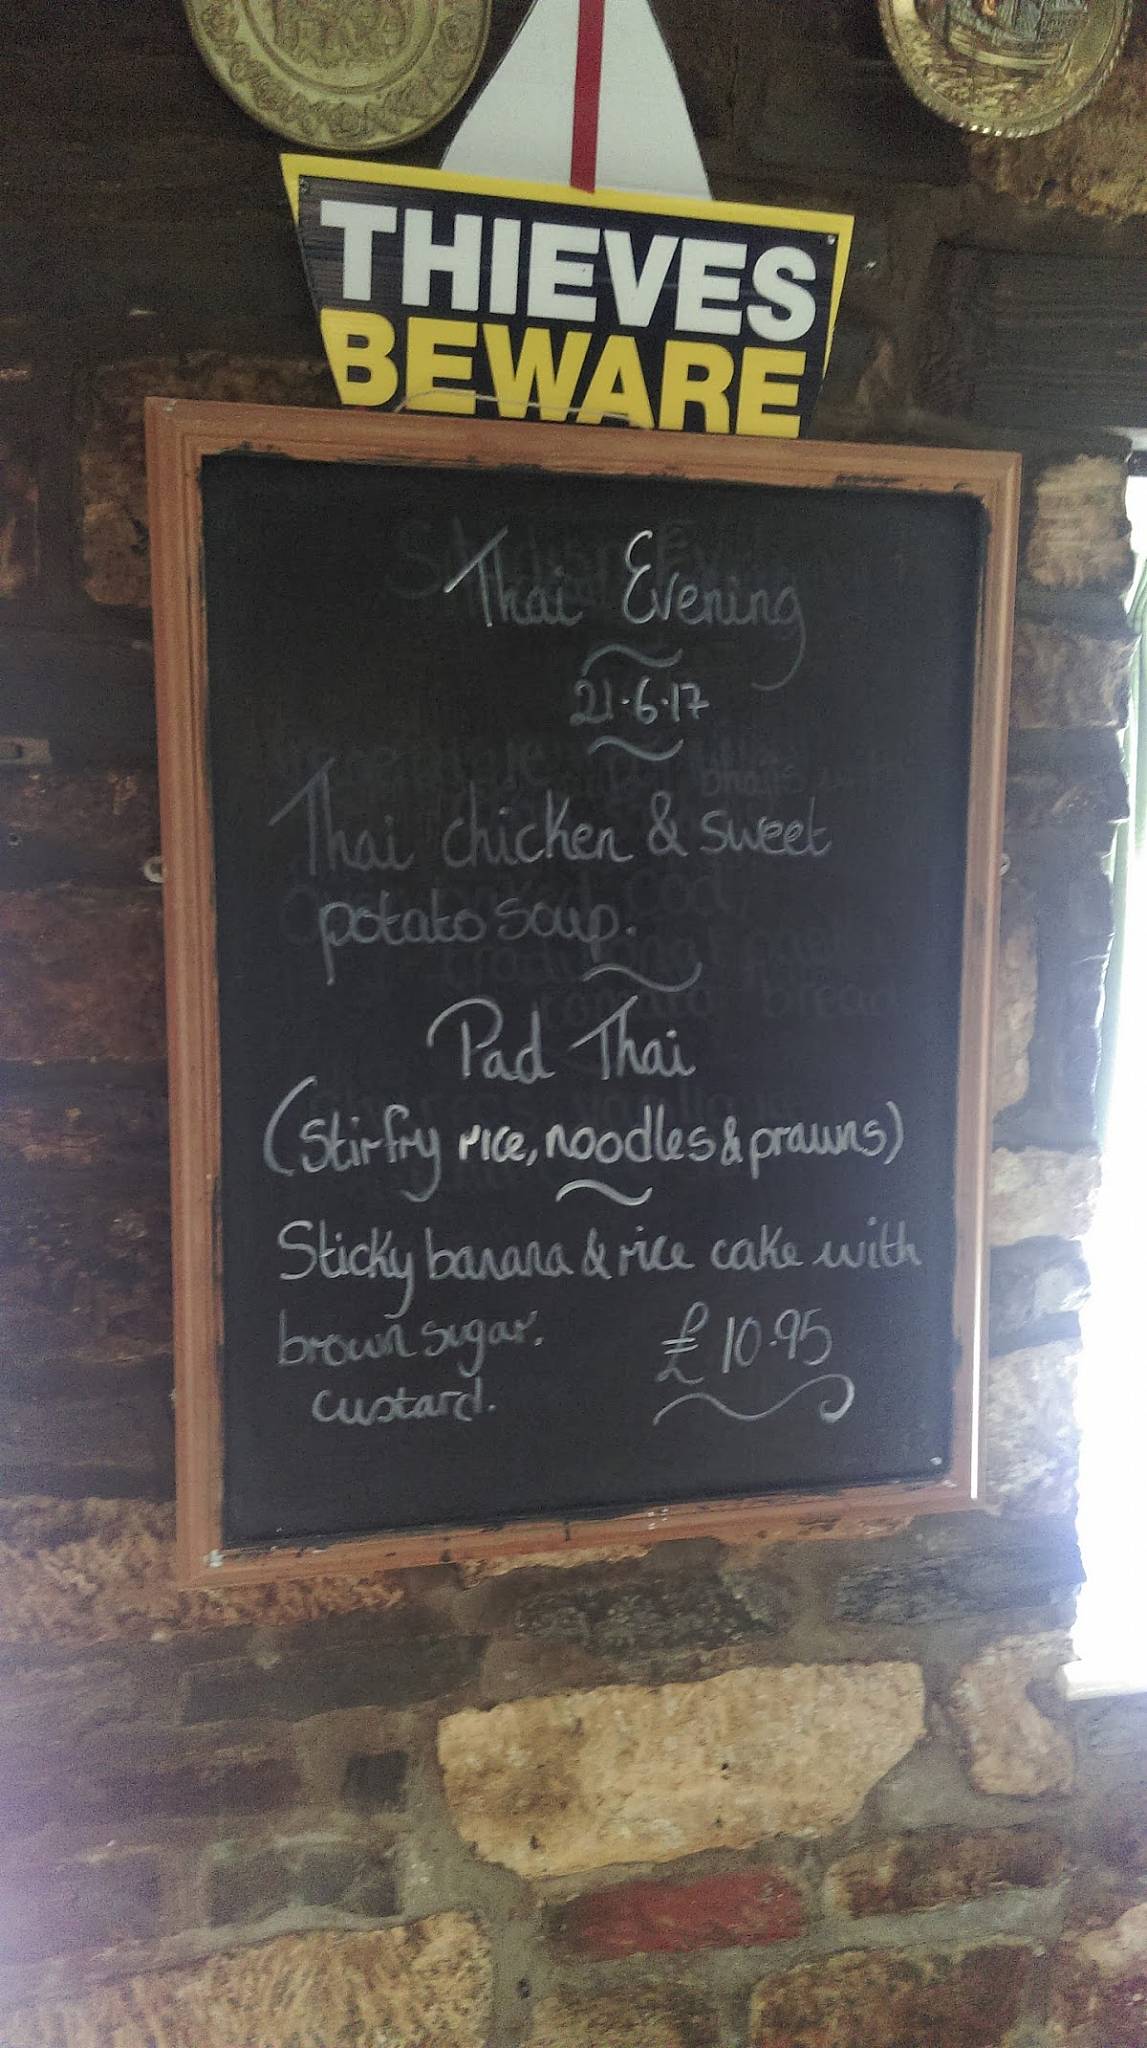 THIEVES
BEWARE
Thai Evening
21.6.17
Thai chicken & sweet
potato soup.
Pad Thai
(Stirfry rice, noodles & prawns)
Sticky banana & rice cake with
brown sugar.
£10.95
custard.